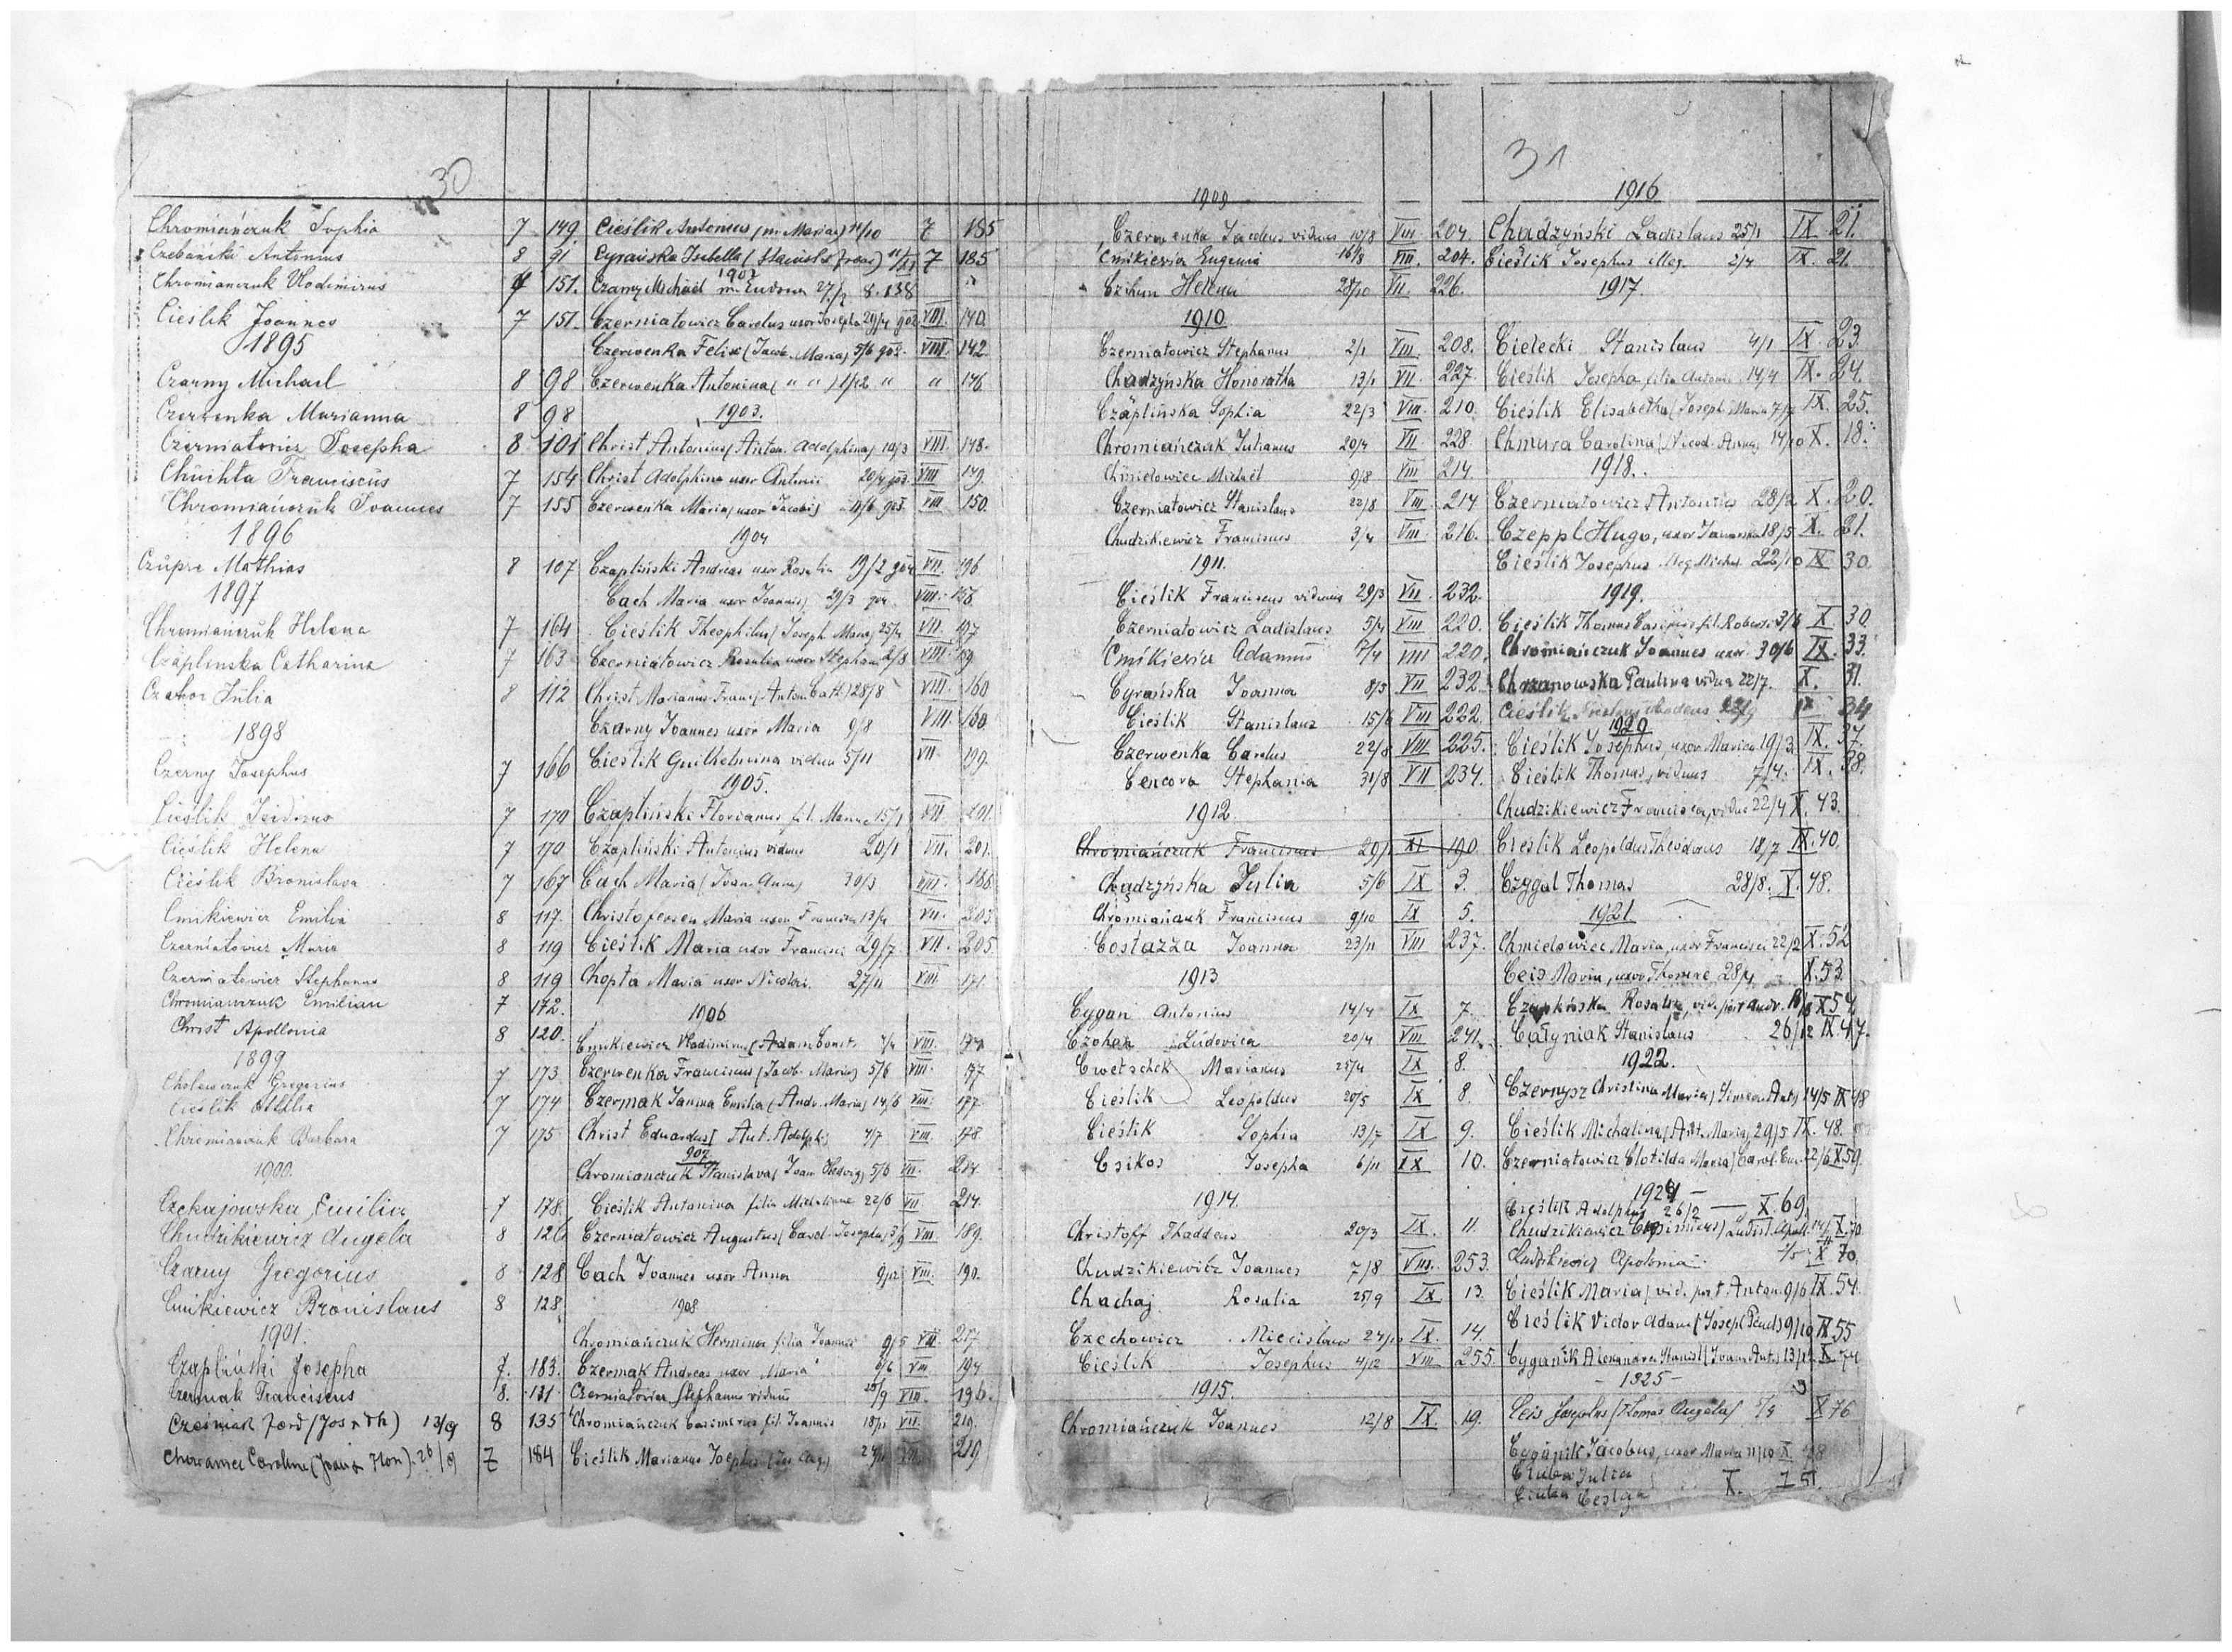 30
Chromiańczuk Sophia 7 149
Czebański Antonius 8 91
Chromiańczuk Wlodimirus 7 151.
Cieślik Joannes 7 151.
1895
Czarny Michael 8 98
Czerwenka Marianna 8 98
Czerniatowicz Josepha 8 101
Chuchta Franciscus 7 154
Chromiańczuk Joannes 7 155
1896
Czupra Mathias 8 107
1897
Chromiańczuk Helena 7 164
Czaplinska Catharina 7 163
Julia 8 112
1898
Czerny Josephus 7 166
Cieślik Isidorus 7 170
Cieślik Helena 7 170
Cieślik Bronislava 7 167
Cmikiewicz Emilia 8 117.
Czerniatowicz Maria 8 119
Czerniatowicz Stephanus 8 119
Chromianczuk Emilian 7 172.
Christ Apollonia 8 120.
1899
Cholewczuk Gregorius 7 173
Cieślik 7 174
Chromianczuk Barbara 7 175
1900.
Czekajowska Emilia 7 178.
Chudzikiewicz Angela 8 126
Czarny Gregorius 8 128
Cmikiewicz Bronislaus 8 128
1901.
Czapliński Josepha 7. 183.
Czermak Franciscus 8. 131
Czermak Ferd (Jos + Th) 13/9 8 135
Caroline 26/9 7 184
Cieślik Antonius (m. Maria) 11/10 7 185
Cyrańska Isabella 7 185
1902
Czarny Michael m. Eudoxia 27/2 8. 138
Czerniatowicz Carolus uxor Josepha 29/4 902. VIII. 140.
Czerwenka Felix (Jacob. Maria) 5/6 902. VIII. 142
Czerwenka Antonina ( " " ) 1/12 " " 146
1903.
Christ Antonius (Anton. Adolphina) 10/3 VIII. 148.
Christ Adolphina uxor Antonii 20/4 903. VIII 149.
Czerwenka Maria (uxor Jacobi) 11/6 903. VIII 150.
1904
Czapliński Andreas uxor Rosalia 19/2 904 VII. 196
Cach Maria uxor Joannis 29/3 904 VIII. 156
Cieślik Theophilus (Joseph Maria) 25/4 VII. 197
Czerniatowicz Rosalia uxor Stephani 2/8 VIII. 159
Christ Marianus Franc. (Anton. Cath) 28/8 VIII. 160
Czarny Joannes uxor Maria 9/8 VIII. 160.
Cieslik Guilhelmina vidua 5/11 VII. 199.
1905.
Czapliński Florianus fil. Mariae 15/1 VII. 201.
Czapliński Antonius viduus 20/1 VII. 201.
Cach Maria (Joan. Anna) 30/3 VIII.
Maria uxor Francisci 13/4 VII. 203.
Cieślik Maria uxor Francisci 29/7 VII. 205
Chopta Maria uxor Nicolai 27/11 VIII 171.
1906
Cmikiewicz Vladimirus (Adam Const. VIII.
Czerwenka Franciscus (Jacob. Maria) 5/6 VIII. 177
Czermak Janina Emilia (Andr. Maria) 14/6 VIII. 177.
Christ Eduardus ( Ant. Adolph.) 4/7 VIII. 178.
907
Chromianczuk Stanislava (Joan Hedvig) 5/6 VII. 214
Cieślik Antonina filia Michalinae 22/6 VII 214.
Czerniatowicz Augustus (Carol. Josepha) 3/9 VIII. 189.
Cach Joannes uxor Anna 9/12 VIII. 190.
1908
Chromiańczuk Hermina filia Joannis 9/5 VII. 217
Czermak Andreas uxor Maria 6/6 VIII 194
Czerniatowicz Stephanus viduus 25/9 VIII. 196.
Chromiańczuk Casimirus fil. Joannis 18/11 VII. 219.
Cieślik Marianus Josephus VII. 219
31
1909
Czerwenka Jacobus viduus 10/8 VIII 204.
Cmikiewicz Eugenia 16/8 VIII. 204.
Czikun Helena 28/10 VII. 226.
1910
Czerniatowicz Stephanus 2/1 VIII. 208.
Chadzyńska Honoratha 13/1 VII. 227.
Czaplińska Sophia 22/3 VIII. 210.
Chromiańczuk Julianus 20/4 VII. 228.
Chmielowiec Michael 9/8 VIII 214.
Czerniatowicz Stanislaus 22/8 VIII. 214
Chudzikiewicz Franciscus 3/4 VIII. 216.
1911.
Cieślik Franciscus viduus 29/3 VII. 232.
Czerniatowicz Ladislaus 5/4 VIII 220.
Cmikiewicz Adamus 7/4 VIII 220.
Cyrańska Joanna 8/5 VII 232.
Cieślik Stanislaus 15/6 VIII 222
Czerwenka Carolus 22/8 VIII 225.
Cencora Stephania 31/8 VII 234.
1912.
Chromiańczuk Franciscus 20/1 XI 190.
Chądzyńska Julia 5/6 IX 3.
Chromiańczuk Franciscus 9/10 IX 5.
Costazza Joanna 23/11 VIII 237.
1913
Cygan Antonius 14/4 IX 7.
Ludovica 20/4 VIII 241.
Cwetschek Marianus 25/4 IX 8.
Cieślik Leopoldus 20/5 IX 8.
Cieślik Sophia 13/7 IX 9.
Csikos Josepha 6/11 IX 10.
1914.
Christoff Thaddeus 20/3 IX. 11.
Chudzikiewicz Joannes 7/8 VIII. 253.
Chachaj Rosalia 25/9 IX 13.
Czechowicz Miecislaus IX. 14.
Cieślik Josephus 4/12 VIII. 255.
1915.
Chromiańczuk Joannes 12/8 IX. 19.
1916
Chadzyński Ladislaus 25/1 IX. 21.
Cieślik Josephus illeg. 2/4 IX. 21.
1917.
Cielecki Stanislaus 4/1 IX. 23.
Cieślik Josepha filia Antonii 14/4 IX. 24.
Cieślik Elisabetha (Joseph. Maria IX. 25.
Chmura Carolina (Nicod. Anna) 14/10 X. 18.
1918.
Czerniatowicz Antonius 28/2 X. 20.
Czeppl Hugo, uxor 18/5 X. 21.
Cieślik Josephus illeg. Michal. 22/10 IX 30.
1919.
Cieślik Thomas Casimir fil. Roberti 3/6 X 30
Chromiańczuk Joannes uxor. 30/6 IX. 33.
Chrzanowska Paulina vidua 22/7. X. 31.
Cieślik IX 34
1920
Cieślik Josephus, uxor Maria 19/3 IX. 37.
Cieślik Thomas, viduus 7/4. IX. 38.
Chudzikiewicz Francisca, vidua 22/4 X. 43.
Cieślik Leopoldus Theodorus 18/7 IX. 40.
Czygal Thomas 28/8. X. 48.
1921
Chmielowiec Maria, uxor Francisci 22/2 X. 52
Ceis Maria, uxor Thomae 28/4 X. 53.
Czaplińska Rosalia, vid. post Andr. X 54
Całyniak Stanislaus 26/12 IX 47.
1922.
Czernysz Christina Maria (Simeon Ant.) 24/5 IX 48
Cieślik Michalina (Ant. Maria) 29/5 IX. 48.
Czerniatowicz Clotilda Maria (Carol. Em. 22/6 X 59.
1924
Cieślik Adolphus 26/2 — X. 69.
Chudzikiewicz Casimirus X. 70
Chudzikiewicz Apolonia X 70
Cieślik Maria (vid. post Anton. 9/6 IX. 54.
Cieślik Victor Adam (Joseph Paul) 9/10 IX 55
Cyganik Alexander Stanisl (Joan Ant.) 13/12 X 74
- 1925 -
Ceis Josephus (Thomas Angela) X 76
Cyganik Jacobus, uxor Maria 11/10 X
Julia
X. 151.